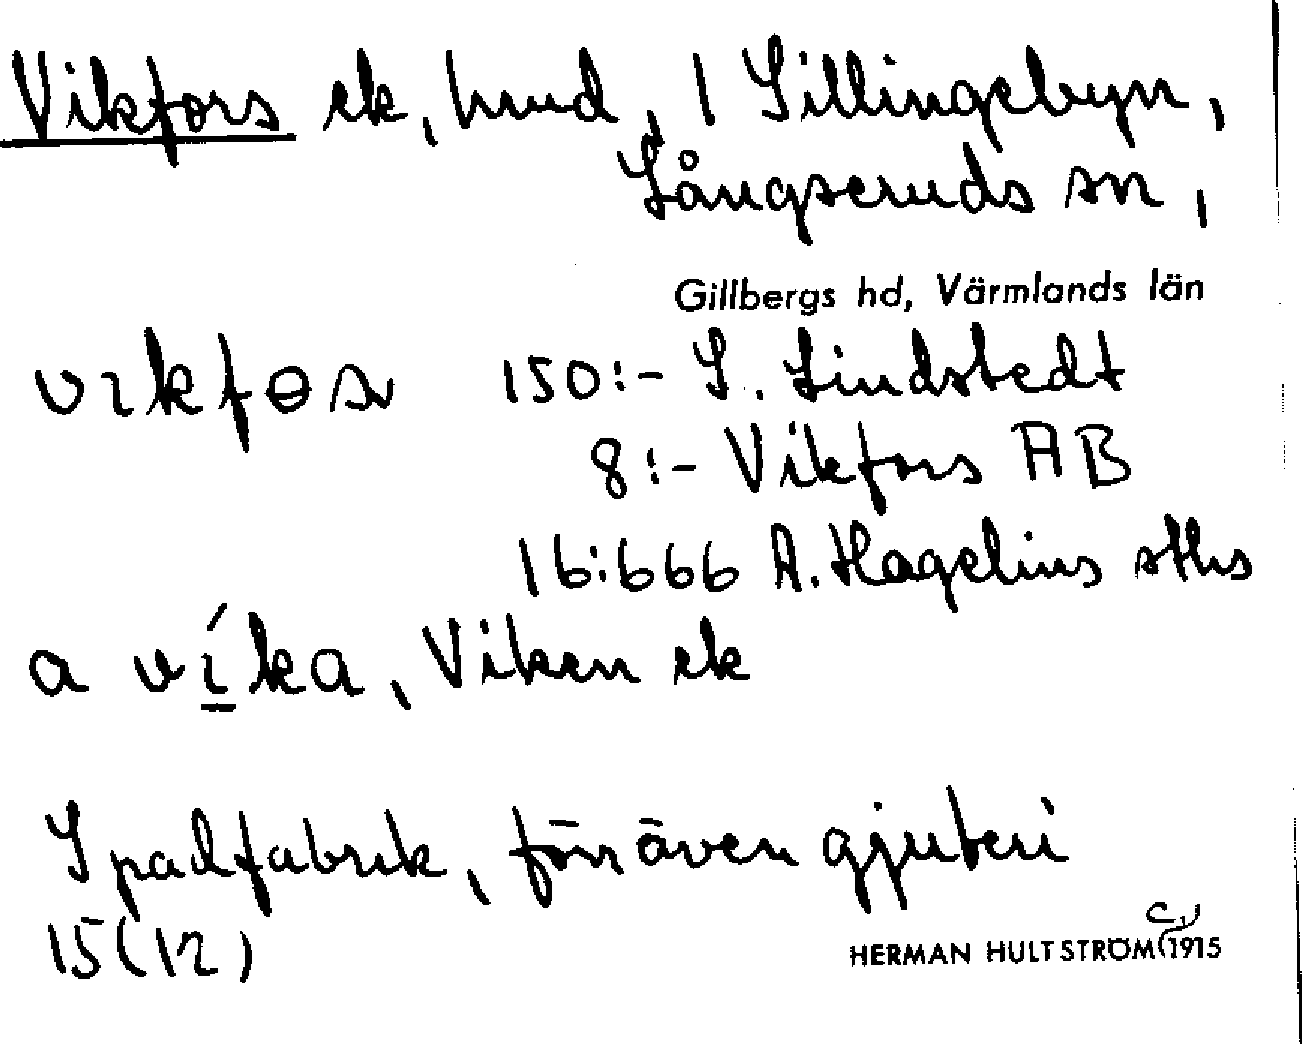 Vikfors ek, hmd, 1 Sillingebyn,
Långseruds sn,
Gillbergs hd, Värmlands län
vɩkfɵsv 150:- S. Lindstedt
8:- Vikfors AB
16:666 A. Hagelius sths
a víka, Viken ek
Spadfabrik, förr även gjuteri
15(12)
HERMAN HULTSTRÖM 1915